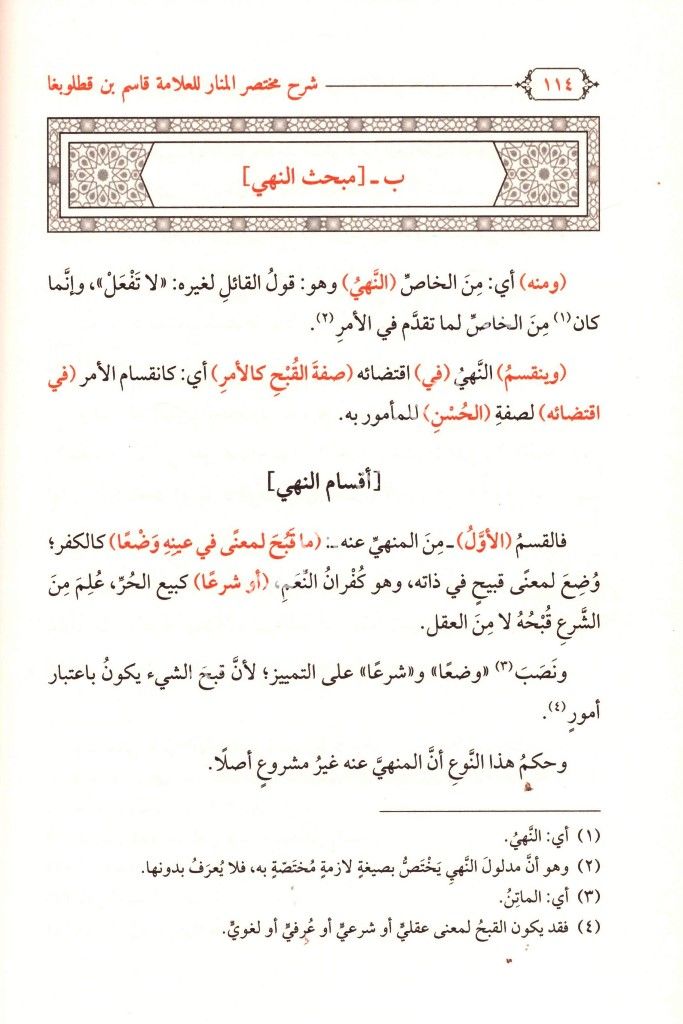 ١١٤ شرح مختصر المنار للعلامة قاسم بن قطلوبغا
ب ـ [مبحث النهي]
(ومنه) أي: مِنَ الخاصِّ (النَّهيُ) وهو: قولُ القائلِ لغيره: «لا تَفْعَلْ»، وإنَّما
كان(١) مِنَ الخاصِّ لما تقدَّم في الأمرِ(٢).
(وينقسمُ) النَّهيُ (في) اقتضائه (صفةَ القُبْحِ كالأمرِ) أي: كانقسام الأمر (في
اقتضائه) لصفةِ (الحُسْنِ) للمأمور به.
[أقسام النهي]
فالقسمُ (الأوَّلُ) ـ مِنَ المنهيِّ عنه ـ: (ما قَبُحَ لمعنًى في عينِهِ وَضْعًا) كالكفر؛
وُضِعَ لمعنًى قبيحٍ في ذاته، وهو كُفْرانُ النِّعَمِ، (أو شرعًا) كبيع الحُرِّ، عُلِمَ مِنَ
الشَّرعِ قُبْحُهُ لا مِنَ العقل.
ونَصَبَ(٣) «وضعًا» و«شرعًا» على التمييز؛ لأنَّ قبحَ الشيء يكونُ باعتبار
أمورٍ(٤).
وحكمُ هذا النَّوعِ أنَّ المنهيَّ عنه غيرُ مشروعٍ أصلًا.
(١) أي: النَّهيُ.
(٢) وهو أنَّ مدلولَ النَّهيِ يَخْتَصُّ بصيغةٍ لازمةٍ مُختَصّةٍ به، فلا يُعرَفُ بدونها.
(٣) أي: الماتِنُ.
(٤) فقد يكون القبحُ لمعنى عقليٍّ أو شرعيٍّ أو عُرفيٍّ أو لغويٍّ.